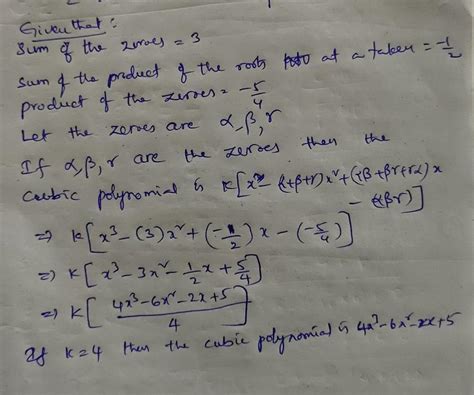 Given that:
Sum of the zeroes = 3
Sum of the product of the roots at a taken = -1/2
product of the zeroes = -5/4
Let the zeroes are α, β, γ
If α, β, γ are the zeroes then the
Cubic polynomial is k[x³ - (α+β+γ)x² + (αβ+βγ+γα)x
- (αβγ)]
⇒ k[x³ - (3)x² + (-1/2)x - (-5/4)]
⇒ k[x³ - 3x² - 1/2x + 5/4]
⇒ k[(4x³ - 6x² - 2x + 5)/4]
If k=4 then the cubic polynomial is 4x³ - 6x² - 2x + 5